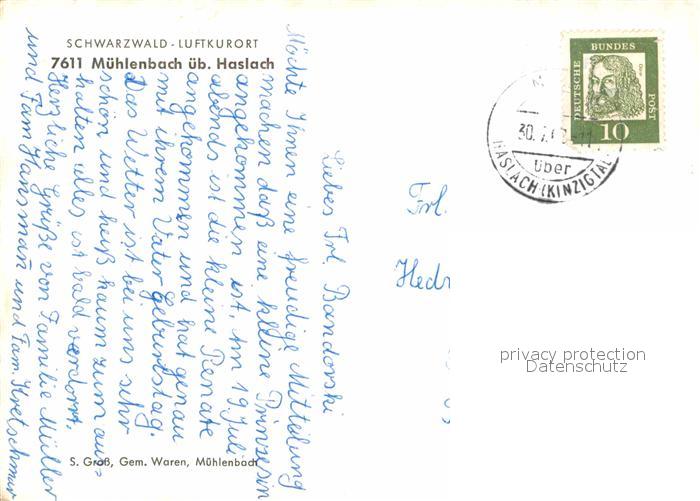 SCHWARZWALD - LUFTKURORT
7611 Mühlenbach üb. Haslach
Liebes Frl. Bandorski
Möchte Ihnen eine freudige Mitteilung
machen daß eine kleine Prinzesin
angekommen ist, Am 19. Juli
abends ist die kleine Renate
angekommen und hat genau
mit ihrem Vater Geburtstag.
Das Wetter ist bei uns sehr
schön und heiß kaum zum aus=
halten alles ist bald verdorrt,
Herzliche Grüße von Familie Müller
und Fam Hansmann und Fam Kretschmar
S. Groß, Gem. Waren, Mühlenbach
DEUTSCHE
BUNDES
POST
10
30. 7.
über
HASLACH (KINZIGTAL)
Frl.
Hedr
privacy protection
Datenschutz